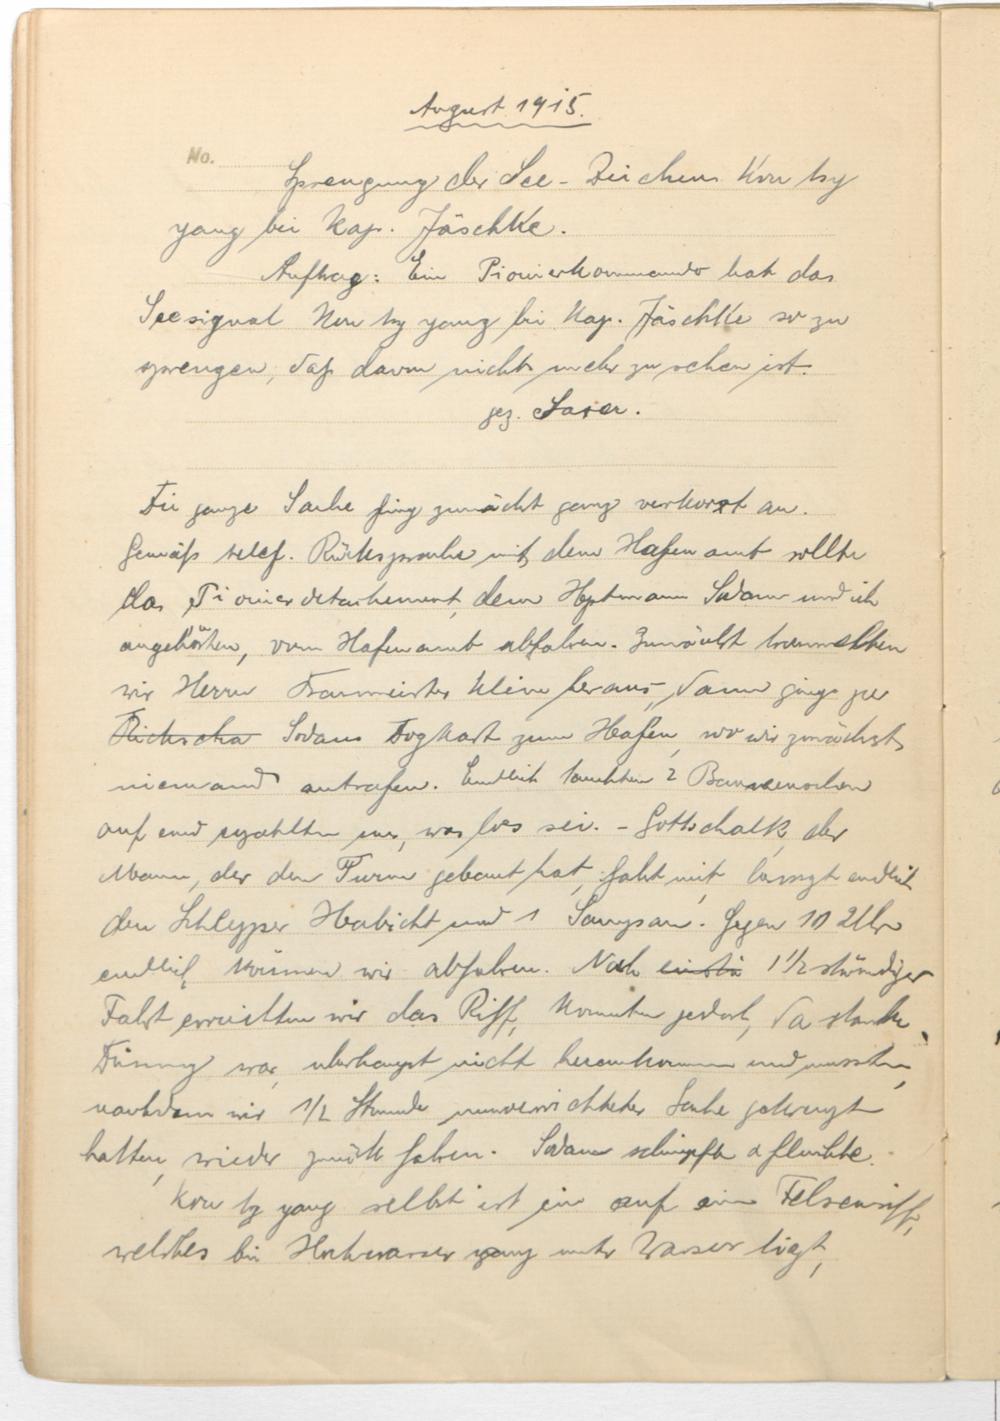 August 1915.
No.
Sprengung des See-Zeichens Kou tsy
yang bei Kap. Jäschke.
Auftrag: Ein Pionierkommando hat das
Seesignal Kou tsy yang bei Kap. Jäschke so zu
sprengen, daß davon nichts mehr zu sehen ist.
gez. Saxer.
Die ganze Sache fing zunächst ganz verkorxt an.
Gemäß telef. Rücksprache mit dem Hafenamt sollte
das Pionierdetachement, dem Hptmann Sodan und ich
angehörten, vom Hafenamt abfahren. Zunächst trommelten
wir Herrn Baumeister Klein heraus, dann gings per
Rickscha Sodans Dogkart zum Hafen, wo wir zunächst
niemand antrafen. Endlich tauchten 2
auf und erzählten uns, was los sei. - Gottschalk, der
Mann, der den Turm gebaut hat, fährt mit, besorgt endlich
den Schlepper Habicht und 1 Sampan. Gegen 10 Uhr
endlich können wir abfahren. Nach 1 1/2 stündiger
Fahrt erreichten wir das Riff, konnten jedoch, da starke
Dünung war, überhaupt nicht herankommen und mussten,
nachdem wir 1/2 Stunde unverrichteter Sache gekreuzt
hatten, wieder zurück fahren. Sodan schimpfte & fluchte.
Kou tsy yang selbst ist ein auf ein Felsenriff,
welches bei Hochwasser ganz unter Wasser liegt,